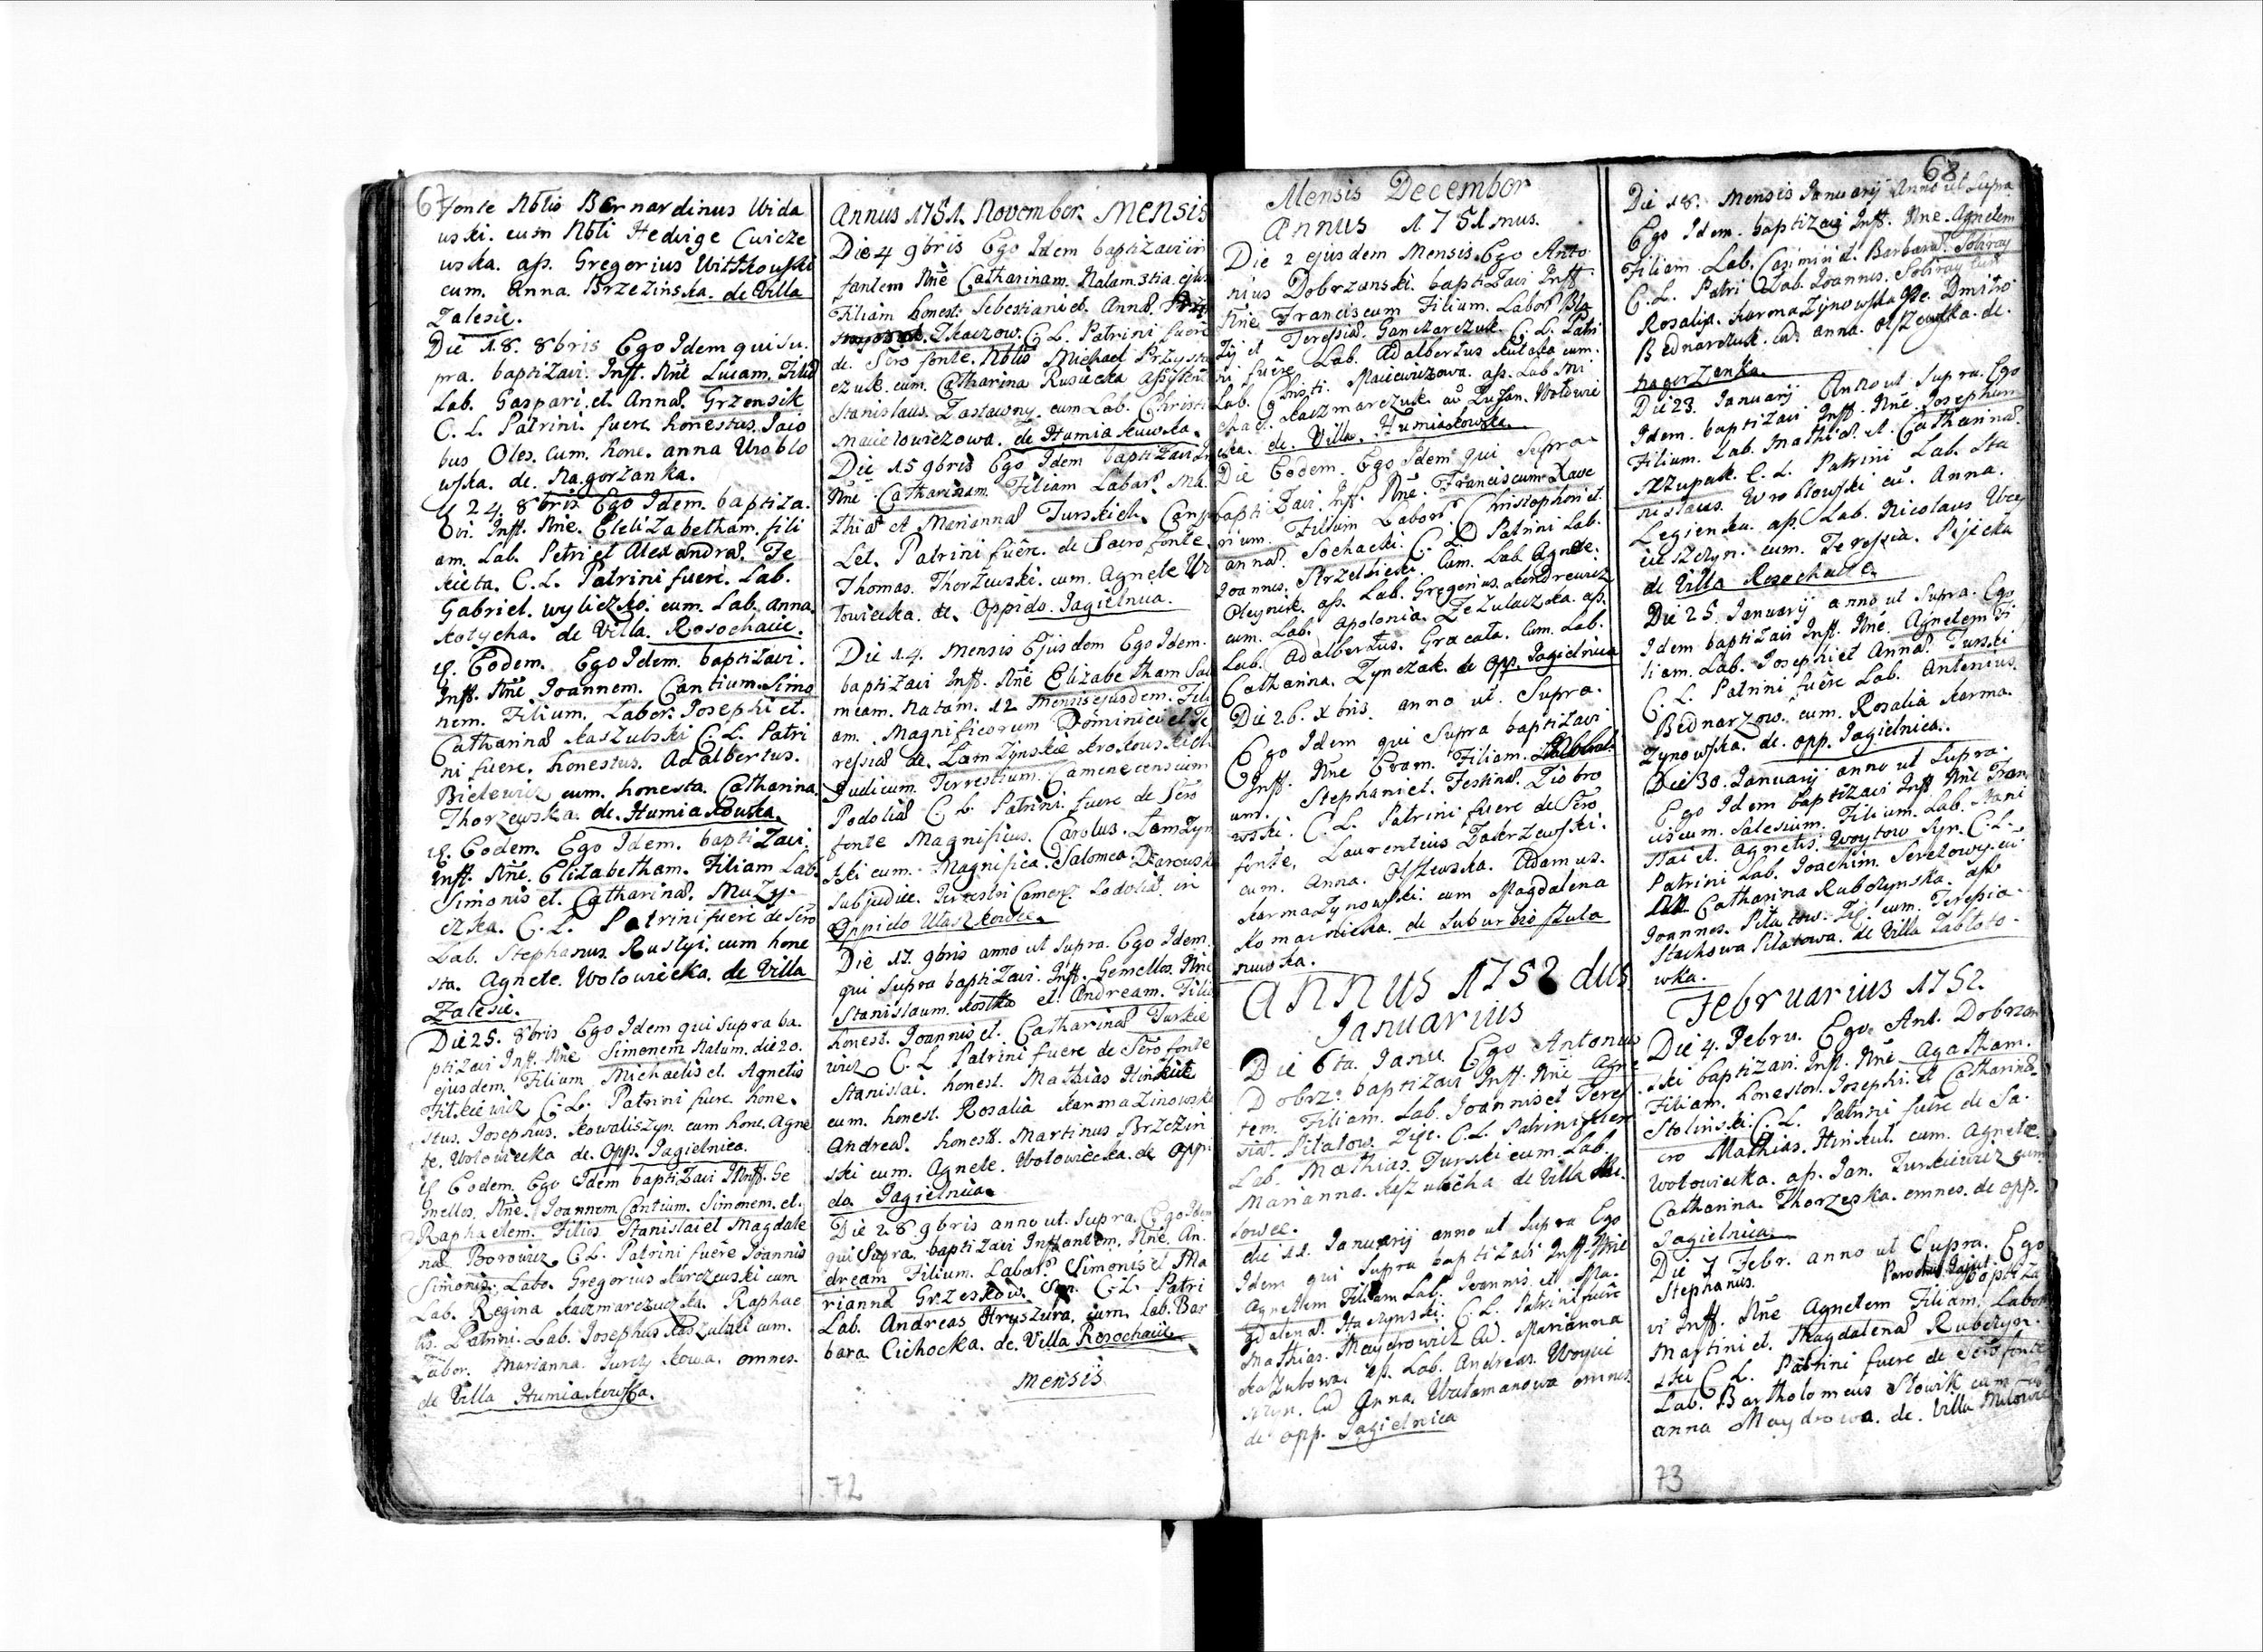 67
fonte Nbtis Bernardinus Wida
wski. cum Nbti Hedvige Cwicze
wska. as. Gregorius Witkowski
cum. Anna. Brzezinska. de Villa
Zalesie.
Die 18. 8bris Ego Idem qui su.
pra. baptizavi. Inft. Nne Luciam. Filiã
Lab. Gaspari. et. Annæ. Grzensik
C. L. Patrini. fuere. honestus. Jaco
bus Oles. cum. hone. anna Wroblo
wska. de. Nagorzanka.
24. 8bris Ego Idem. baptiza.
vi. Inft. Nne. Elelizabetham. fili
am. Lab. Petri et Alexandræ. Te
C. L. Patrini fuere. Lab.
Gabriel. wyliczko. cum. Lab. anna.
kotycha. de Villa. Rosochacie.
Eodem. Ego Idem. baptizavi.
Inft. Nne Joannem. Cantium. Simo
nem. Filium. Labor. Josephi et.
Catharinæ Kaszubski C. L. Patri
ni fuere. honestus. Adalbertus.
Bielewicz cum. honesta. Catharina.
Thorzewska. de. Humiakowka.
Eodem. Ego Idem. baptizavi.
Inft. Nne. Elizabetham. Filiam Lab.
Simonis et. Catharinæ. Muzy.
czka. C. L. Patrini fuere de Sero
Lab. Stephanus. Ruslyi. cum hone
sta. Agnete. Wolowiecka. de Villa
Zalesie.
Die 25. 8bris Ego Idem qui supra ba.
ptizavi Inft. Nne Simonem Natum. die 20.
ejusdem. Filium Michaelis et. Agnetis
Fitkiewicz C. L. Patrini fuere. hone.
stus. Josephus. Kowaliszyn. cum hone. Agne
te. Wolowiecka de. Opp. Jagielnica.
Eodem. Ego Idem baptizavi Inft. Ge
mellos. Nne. Joannem Cantium. Simonem. et.
Raphaelem. Filios Stanislai et Magdale
næ Borowicz C. L. Patrini fuere Joannis
Simonis. Labo. Gregorius Kurczewski cum
Lab. Regina Kaczmarczuczka. Raphae
lis. Patrini. Lab. Josephus Kaszubski cum.
Labor. Marianna. omnes.
de Villa Humiakowska.
Annus 1751. November. Mensis
Die 4 9bris Ego Idem baptizavi in
fantem Nne Catharinam. Natam 3tia. ejus
Filiam honest. Sebestiani et. Annæ.
Tkaczow. C. L. Patrini fuere
de. Sero fonte. Nbtis Michael Przysta
czuk. cum. Catharina Rusiecka assisten
Stanislaus. Zastawny. cum Lab. Christi
macielowiczowa. de Humiakuwka.
Die 15 9bris Ego Idem baptizavi
Nne Catharinam. Filiam Labor. Ma.
thiæ et Mariannæ Turskich.
Let. Patrini fuere. de Sacro fonte.
Thomas. Thorzewski. cum. Agnete Wo
lowiecka. de. Oppido. Jagielnica.
Die 14. Mensis Ejusdem Ego Idem.
baptizavi Inft. Nne Elizabetham Sa
meam. Natam. 12 Mensis ejusdem. Fili
am. Magnificorum Dominici et Te
ressiæ de. Lamzynskie
Judicum. Terrestrium. Camenecensium
Podoliæ C. L. Patrini. fuere de Sero
fonte Magnificus. Carolus. Lamzyn
ski cum. Magnifica. Salomea.
Subjudice. Terrestri Camenz. Podoliæ. in
Oppido Ulaszkowce.
Die 17. 9bris anno ut supra. Ego Idem.
qui supra baptizavi. Inft. Gemellos. Nne
Stanislaum. Kostka et Andream. Filios
honest. Joannis et. Catharinæ Turkie
wicz C. L Patrini fuere de Sero fonte
Stanislai. honest. Mathias
cum. honest. Rosalia Karmazinowska
Andreæ. honest. Martinus Brzezin
ski cum. Agnete. Wolowiecka. de Oppi
do. Jagielnica.
Die 28 9bris anno ut. Supra. Ego Idem
qui Supra. baptizavi Infantem. Nne. An.
dream Filium. Labor. Simonis et Ma
riannæ Grzeskow. Syn. C. L. Patri
Lab. Andreas Hryszura. cum. lab. Bar
bara. Cichocka. de. Villa Rosochacie.
Mensis
72
Mensis December
Annus 1751mus.
Die 2 ejusdem Mensis. Ego Anto
nius Dobrzanski. baptizavi Inft
Nne Franciscum Filium. Labor. Bla
zij et Teressiæ. Ganczarczuk. C. L. Patri
ni fuere. Lab. Adalbertus Kutaka cum.
Lab. Christi. Maciewiczowa. as. Lab Mi
chael. Kaczmarczuk. cu Zuzan. Wolowie
cka. de. Villa. Humiakowka.
Die Eodem. Ego Idem qui Supra
baptizavi. Inft. Nne. Franciscum Xave
rium. Filium Labor. Christophori et.
annæ. Sochacki. C. L Patrini Lab.
Joannes. Strzelnicki. cum. Lab. Agnete.
Oleynik. as. Lab. Gregorius. Andrewicz
cum. Lab. Apolonia. as.
Lab. Adalbertus. Gracata. cum. Lab.
Catharina. Zynczak. de Opp. Jagielnica
Die 26. Xbris. anno ut. Supra.
Ego Idem qui Supra baptizavi
Inft. Nne Evam. Filiam.
um. Stephani et. Festinæ. Ziobro
wski. C. L. Patrini fuere de Sero
fonte. Laurentius Zakrzewski.
cum. Anna. Olszewska. Adamus.
Karmazynowski cum Magdalena
Komarnicka. de Suburbio Szula
nuwka.
Annus 1752dus
Januarius
Die 6ta. Janu. Ego Antonius
Dobrz. baptizavi Inft. Nne Agne
tem. Filiam. Lab. Joannis et Teres
siæ. Pilatow. Zięc. C. L. Patrini fuere
Lab. Mathias. Turski cum. Lab.
Marianna. Kaszubicha de Villa Mi.
lowce.
die 11. Januarij anno ut supra Ego
Idem qui supra baptizavi Inft. Nne
Agnetem Filiam Lab. Joannis et Ma.
gdalenæ. C. L. Patrini fuere
Mathias. Maydrowicz cu. Marianna
Kaszubowa. as. Lab. Andreas. Woyci
szyn. cu Anna. Watamanowa omnes
de opp. Jagielnica
68
Die 18. Mensis Januarij Anno ut Supra
Ego Idem. baptizavi Inft. Nne. Agnetem
Filiam Lab. Casimiri et Barbaræ. Soliray
C. L. Patri Lab. Joannes. Soliray cum
Rosalia. Karmazynowska De. Dmitro
Bednarczuk. cu anna. Olszewska. de.
nagorzanka.
Die 23. Januarij Anno ut Supra. Ego
Idem. baptizavi Inft. Nne. Josephum
Filium. Lab. Mathiæ. et. Catharinæ.
Szupak. C. L. Patrini Lab. Sta
nislaus. Wroblowski cu. Anna.
Legienka. as. Lab. Nicolaus Woy
ciszczyn. cum. Teressia. Pijecka
de Villa Rosochacie.
Die 25. Januarij anno ut Supra. Ego
Idem baptizavi Inft. Nne. Agnetem Fi
liam. Lab. Josephi et Annæ. Turski
C. L. Patrini fuere Lab. Antonius.
Bednarzow. cum. Rosalia Karma.
zynowska. de. opp. Jagielnica.
Die 30. Januarij anno ut supra.
Ego Idem baptizavi Inft Nne Fran
ciscum. Salesium. Filium. Lab. Stani
slai et. Agnetis. Woytow Syn. C. L.
Patrini Lab. Joachim. Seretowy. cu
Catharina Rubczynska. as
Joannes. Pilatow. Zię. cum. Teresia.
Stachowa Pilatowa. de Villa Zabloto
wka.
Februarius 1752.
Die 4. Febru. Ego. Ant. Dobrzan
ski baptizavi. Inft. Nne. Agatham.
Filiam. honestor. Josephi. et Catharinæ.
Stolinski. C. L. Patrini fuere de Sa.
cro Mathias. Hinkul. cum. Agnete.
Wolowiecka. as. Jan. Turkiewicz cum
Catharina. Thorzeska. omnes. de opp.
Jagielnica.
Die 7 Febr. anno ut Supra. Ego
Stephanus. Parochus baptiza
vi Inft. Nne Agnetem Filiam. Labor
Martini et. Magdalenæ Rubczyn.
ski C. L. Patrini fuere de Sero fonte
Lab. Bartholomeus Slowik cum
anna Maydrowa. de. Villa Milowce
73